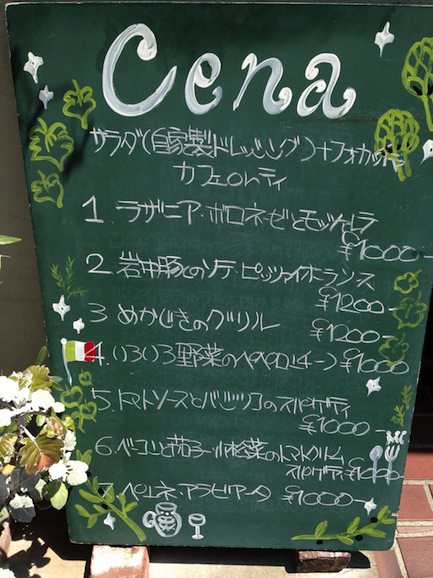 Cena
サラダ(自家製ドレッシング)+フォカッチャ
カフェorティ
1. ラザニア・ボロネーゼとモッツァレラ
¥1000-
2. 岩中豚のソテー・ピッツァイオーラソース
¥1200-
3 めかじきのグリル ¥1200-
4. いろいろ野菜のペペロンチーノ ¥1000
5. トマトソースとバジリコのスパゲティ
¥1000-
6. ベーコンと茄子・小松菜のトマトクリーム
スパゲティ ¥1000
7. ペンネ・アラビアータ ¥1000-